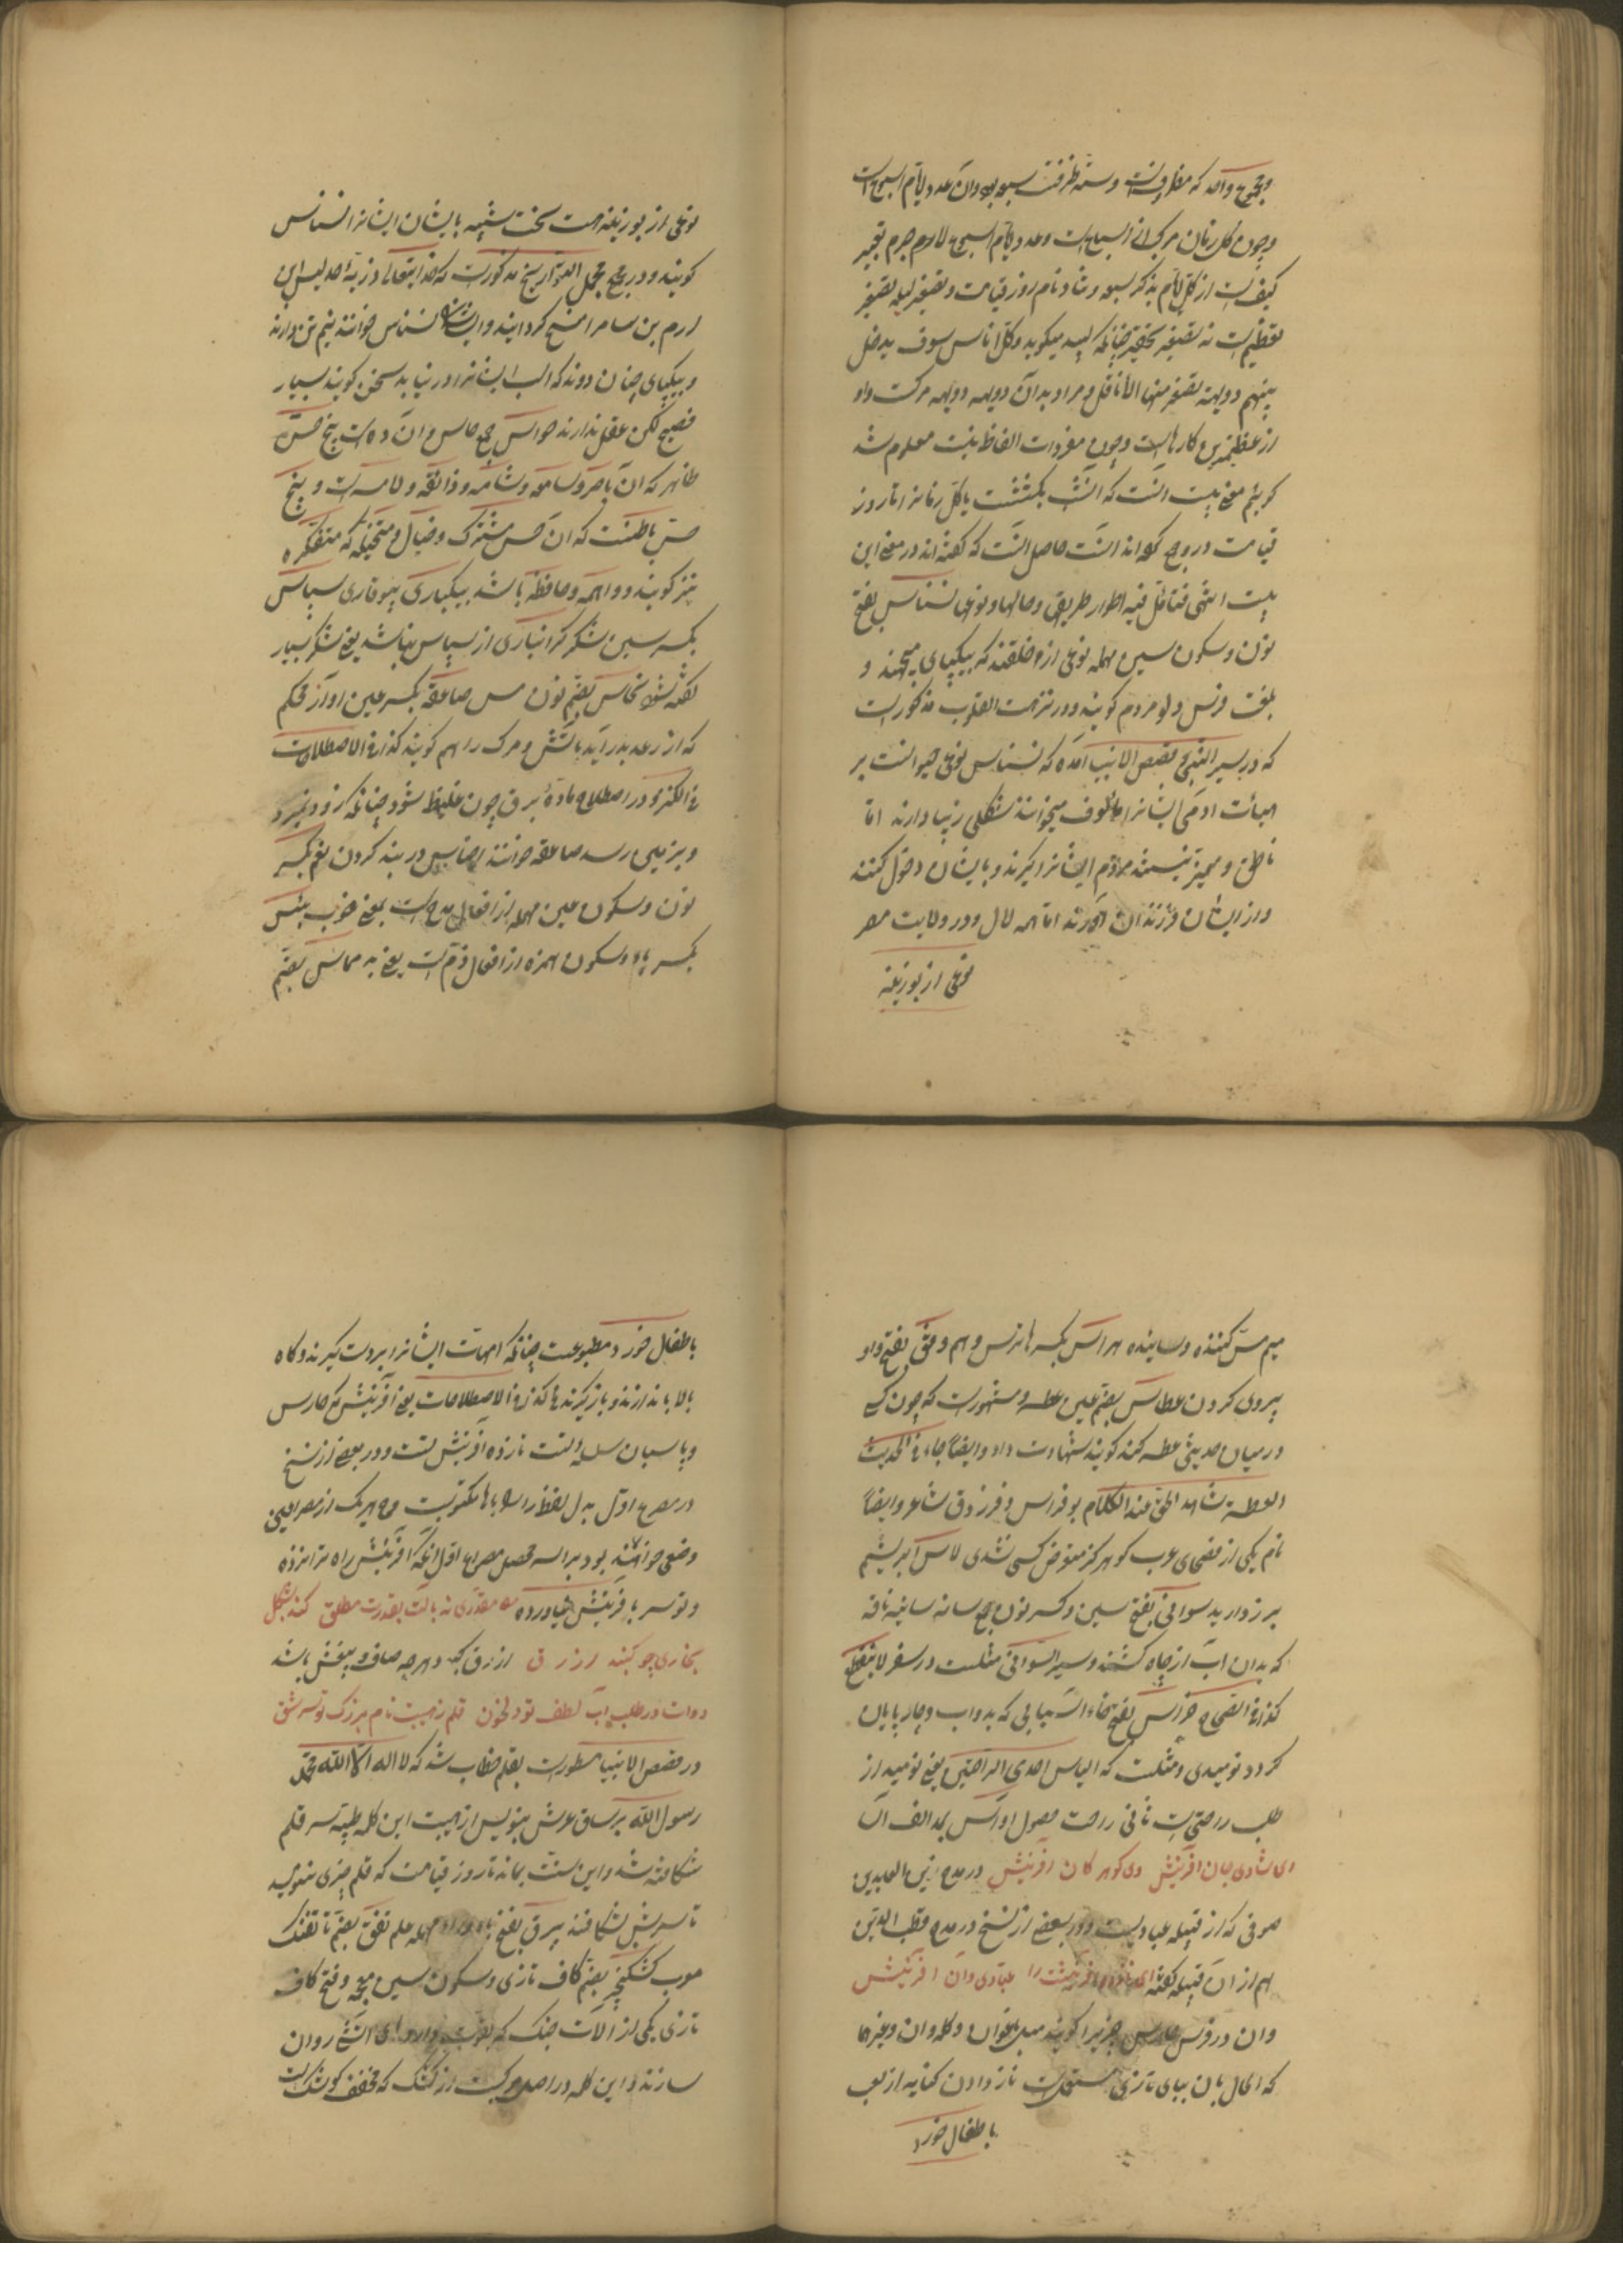 و مجموع و آمد که مظروفست و سته ظرفت سبعه بود و آن عدد ایام اسبوع است
و چون کل زمان مرکب از اسابیع است و عدد ایام اسبوع لاجرم تعبیر
کیفیت از کل ایام بذکر سبعه و تناد نام روز قیامت و تصغیر لییله تصغیر
تعظیم است نه تصغیر تحقیر چنانکه لبید میگوید و کل اناس سوف یدخل
بینهم دویهیة تصفر منها الانامل و مراد بدان دویهیه مرکست و او
از عظیم‌ترین کارهاست و چون مفردات الفاظ بیت معلوم شد
گوییم معنی بیت آنست که آنشب یکشبست یا کل زمانرا تا روز
قیامت در وی گفته‌اند آنست حاصل آنست که گفته‌اند در معنی این
بیت انتهی فتأمل فیه اطوار طریق و حالها و نوعی نسناس بفتح
نون و سکون سین مهمله نوعی از خلقند که بیکپای میجهند و
بلغت فرس دیو مردم گویند و در نزهت القلوب مذکورست
که در سیر النبی و قصص الانبیا آمده که نسناس نوعی حیوانست بر
هیأت آدمی ایشانرا مألوف میخوانند شکلی زیبا دارند اما
ناطق و ممیز نیستند مردم ایشانرا گیرند و با ایشان دخول کنند
و از ایشان فرزندان آورند اما همه لال و در ولایت مصر
نوعی از بوزینه
نوعی از بوزینه هست سخت شبیه بایشان ایشانرا نسناس
گویند و در مجمل التواریخ مذکورست که خدایتعالی ذریه احد لیس این
ارم بن سام را مسخ گردانید و ایشانرا نسناس خوانند نیم تن دارند
و بیکپای چنان دوند که اسب ایشانرا در نیابد سخن گویند بسیار
فصیح لکن عقل ندارند حواس جمع حاس و آن ده است پنج حس
ظاهر که آن باصره و سامعه و شامه و ذائقه و لامسه است و پنج
حس باطنست که آن حس مشترک و خیال و متخیله که متفکره
نیز گویند و واهمه و حافظه باشد بیکباری بیوقاری سپاس
بکسر سین شکر گرانباری از سپاس بنا شد یعنی شکر بسیار
گفته شود نحاس بضم نون مس صاعقه بکسر عین آواز محکم
که از رعد بدر آید باتش و مرگ را هم گویند کذا فی الاصطلاحات
فی الکنز و در اصطلاح ماده برق چون غلیظ شود چنانکه زود نمیرد
و بزمین رسد صاعقه خوانند احتباس در بند کردن نعم بکسر
نون و سکون عین مهمله از افعال مدح است بمعنی خوب بئس
بکسر باء و سکون همزه از افعال ذم است یعنی بد مماس بضم
میم مس کننده و ساینده هراس بکسر ها ترس و هم و وفق بفتح واو
پیروی کردن عطاس بضم عین عطسه و مشهورست که چون کسی
در میان حدیثی عطسه کند گویند شهادت داد و ایضا جاء فی الحدیث
العطسة شاهد الحق عند الکلام بوفراس و فرزدق شاعر و ایضاً
نام یکی از فصحای عرب که هرگز متعرض کسی نشدی لاس ابریشم
بیرزدار پد سوانی بفتح سین و کسر نون جمع سانه سانیه ناقه
که بدان آب از چاه کشند و سیر السوانی مثلست در سفر لا ینقطع
کذا فی الصحاح خراس بفتح خاء آسیابی که بدواب و چارپایان
گردد نومیدی و مثلست که الیاس احدی الراحتین یعنی نومید از
طلب راحتی است ثانی راحت حصول او آس بمد الف آسیا
ای شادی جان آفرینش وی گوهر کان آفرینش در مدح زین العابدین
صوفی که از قبیله عبادیست و در بعضی از نسخ در مدح قطب الدین
هم از آن قبیله گفته ای نازده آفرینشت را عبادی و آن آفرینش
و آن در فرس حارس چیزیرا گویند مثل باغوان و گله‌وان و غیرها
که الحال بان ببای تازی مستعملست ناز دادن کنایه از لعب
با طفال خورد
با طفال خورد مطبوعست چنانکه امهات ایشانرا بر دست گیرند و گاه
بالا باندازند و باز گیرند هاکذا فی الاصطلاحات یعنی آفرینش که حارس
و پاسبان سلسله تست نازده آفرینش تست و در بعضی از نسخ
در مصرع اول بدل لفظ را با مکتوبست و هر یک از مصراعین
وضعی خوانند بود برأسه محصل مصراع اول آنکه آفرینش راه ترا نزده
و تو سر بآفرینش نیاورده مقدری نه بآلت بقدرت مطلق کند بشکل
بخاری چو گنبد ازرق ازرق کبود و هر چه صاف و بیغش باشد
دوات در طلب آب لطف تو دلخون قلم ز هیبت نام بزرگ تو سر شق
در قصص الانبیا مسطورست بقلم خطاب شد که لا اله الا الله محمد
رسول الله بر ساق عرش بنویس از هیبت این کلمه طیبه سر قلم
شکافته شد و این سنت بماند تا روز قیامت که قلم چیزی ننویسد
تا سرش نشکافند بیرق بفتح باء و راء مهمله علم تفق بضم تا تفنگ
معرب کشکنجیر بضم کاف تازی و سکون شین معجمه و فتح کاف
تازی یکی از آلات جنگ که بقوت داروهای آتشی روان
سازند و این کلمه در اصل مرکبست از کشک که مخفف کوشک است